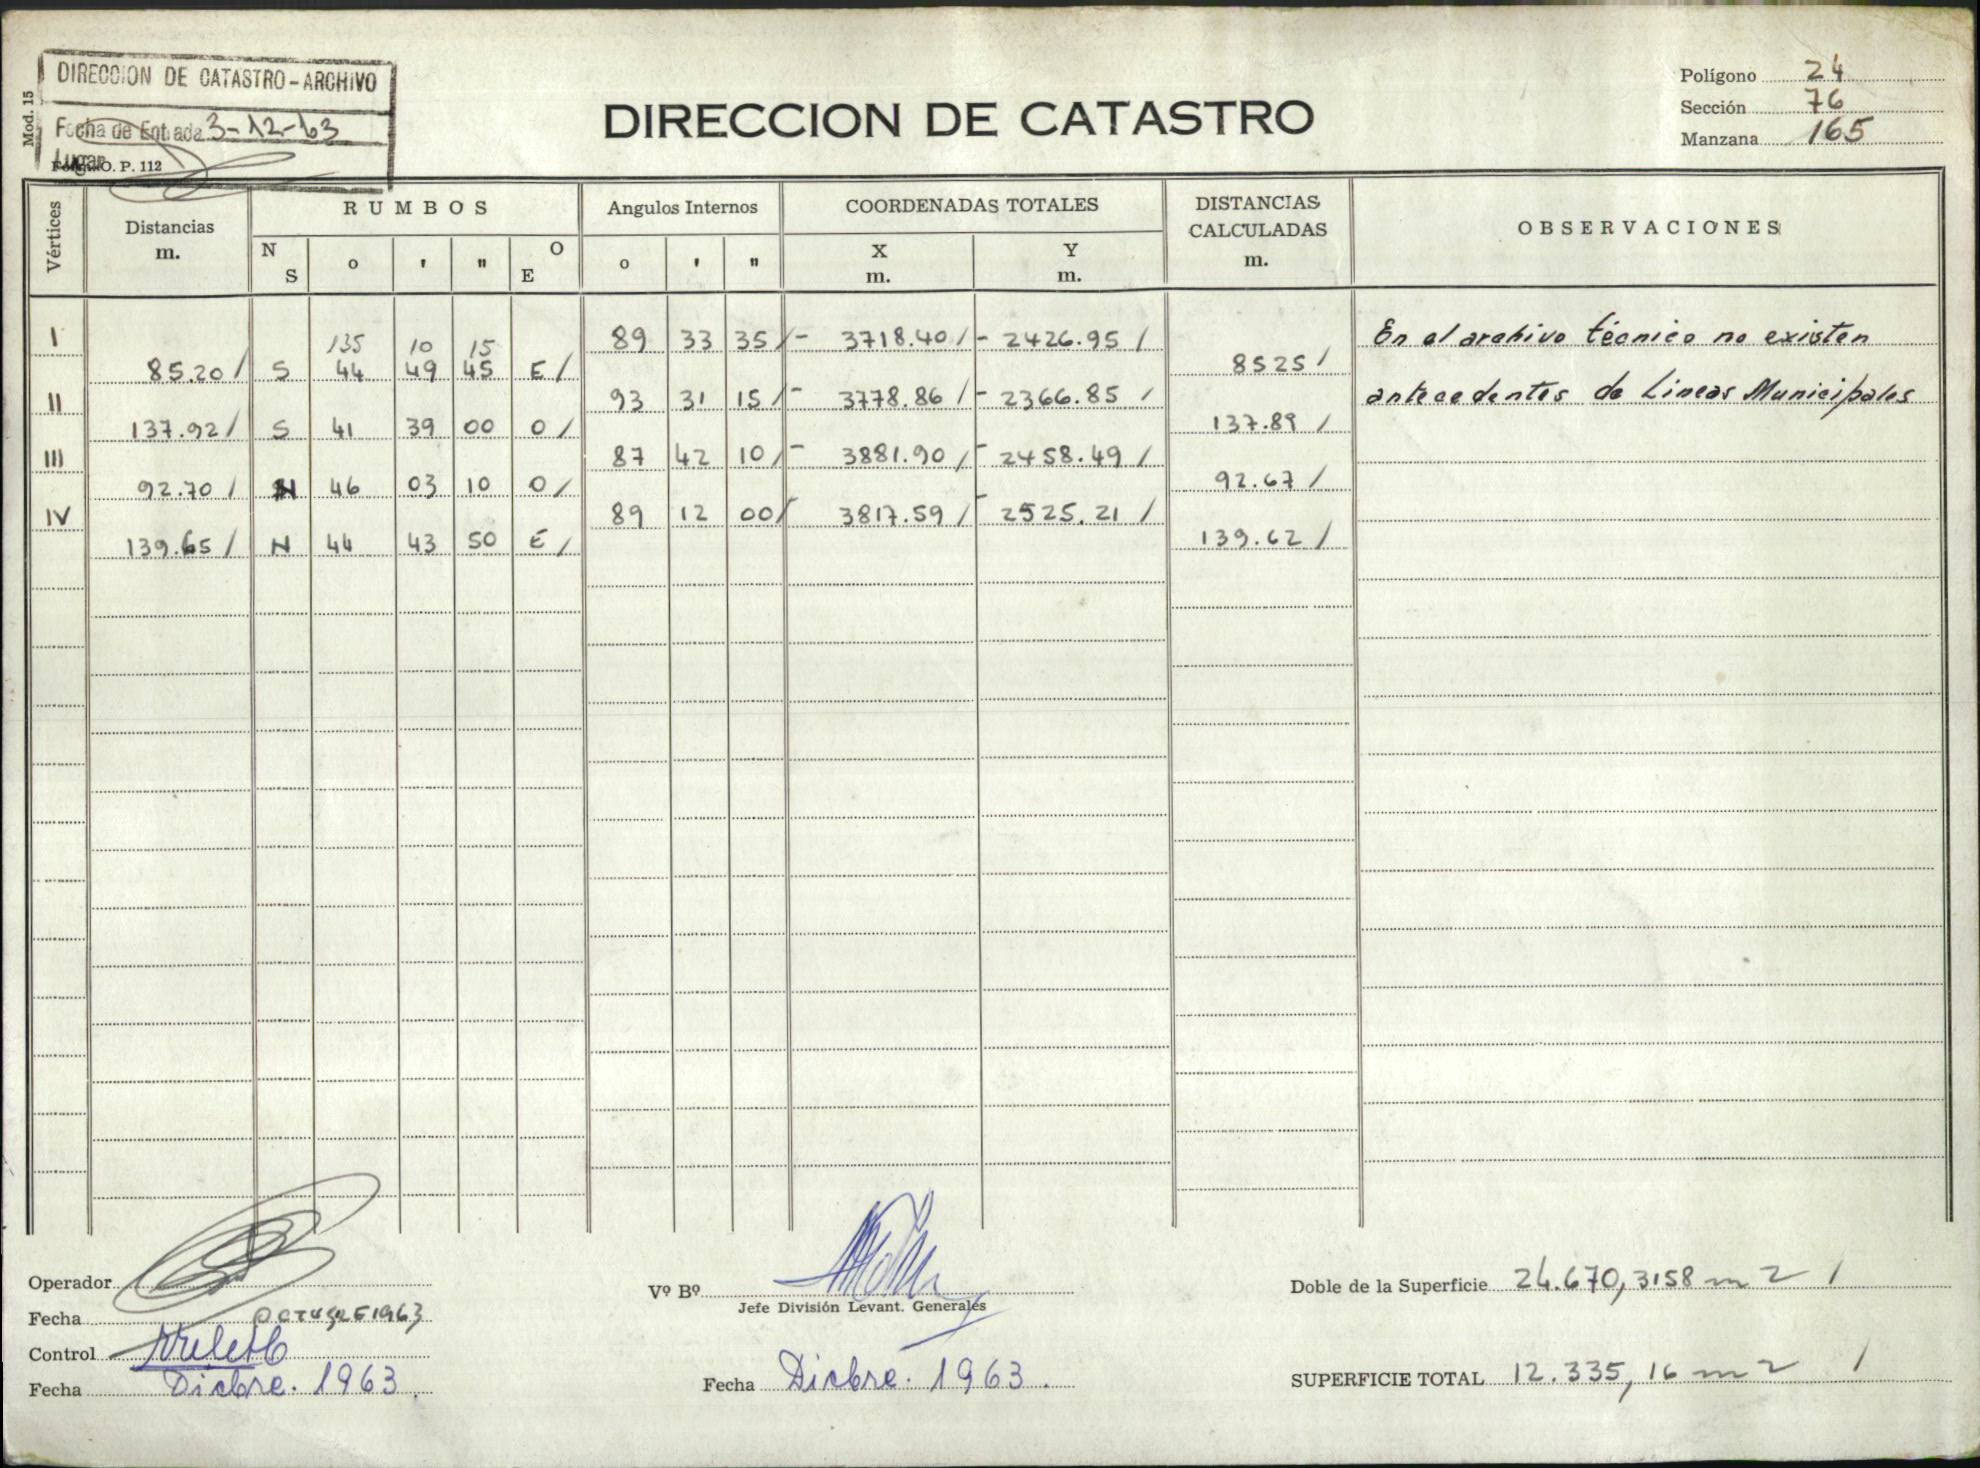 Mod. 15
DIRECCION DE CATASTRO - ARCHIVO
Fecha de Entrada 3-12-63
Lugar
O. P. 112
DIRECCION DE CATASTRO
Polígono 24
Sección 76
Manzana 165
Vértices
Distancias m.
RUMBOS
N S o ' " O E
Angulos Internos
o ' "
COORDENADAS TOTALES
X m. Y m.
DISTANCIAS CALCULADAS m.
OBSERVACIONES
I 89 33 35 / - 3718.40 / - 2426.95 /
135 10 15
85.20 / S 44 49 45 E / 8525 /
II 93 31 15 / - 3778.86 / - 2366.85 /
137.92 / S 41 39 00 O / 137.89 /
III 87 42 10 / - 3881.90 / - 2458.49 /
92.70 / N 46 03 10 O / 92.67 /
IV 89 12 00 / - 3817.59 / - 2525.21 /
139.65 / N 44 43 50 E / 139.62 /
En el archivo técnico no existen
antecedentes de Lineas Municipales
Operador
Fecha OCTUBRE 1963
Control
Fecha Dicbre. 1963.
Vº Bº
Jefe División Levant. Generales
Fecha Dicbre. 1963.
Doble de la Superficie 24.670,3158 m2 /
SUPERFICIE TOTAL 12.335,16 m2 /